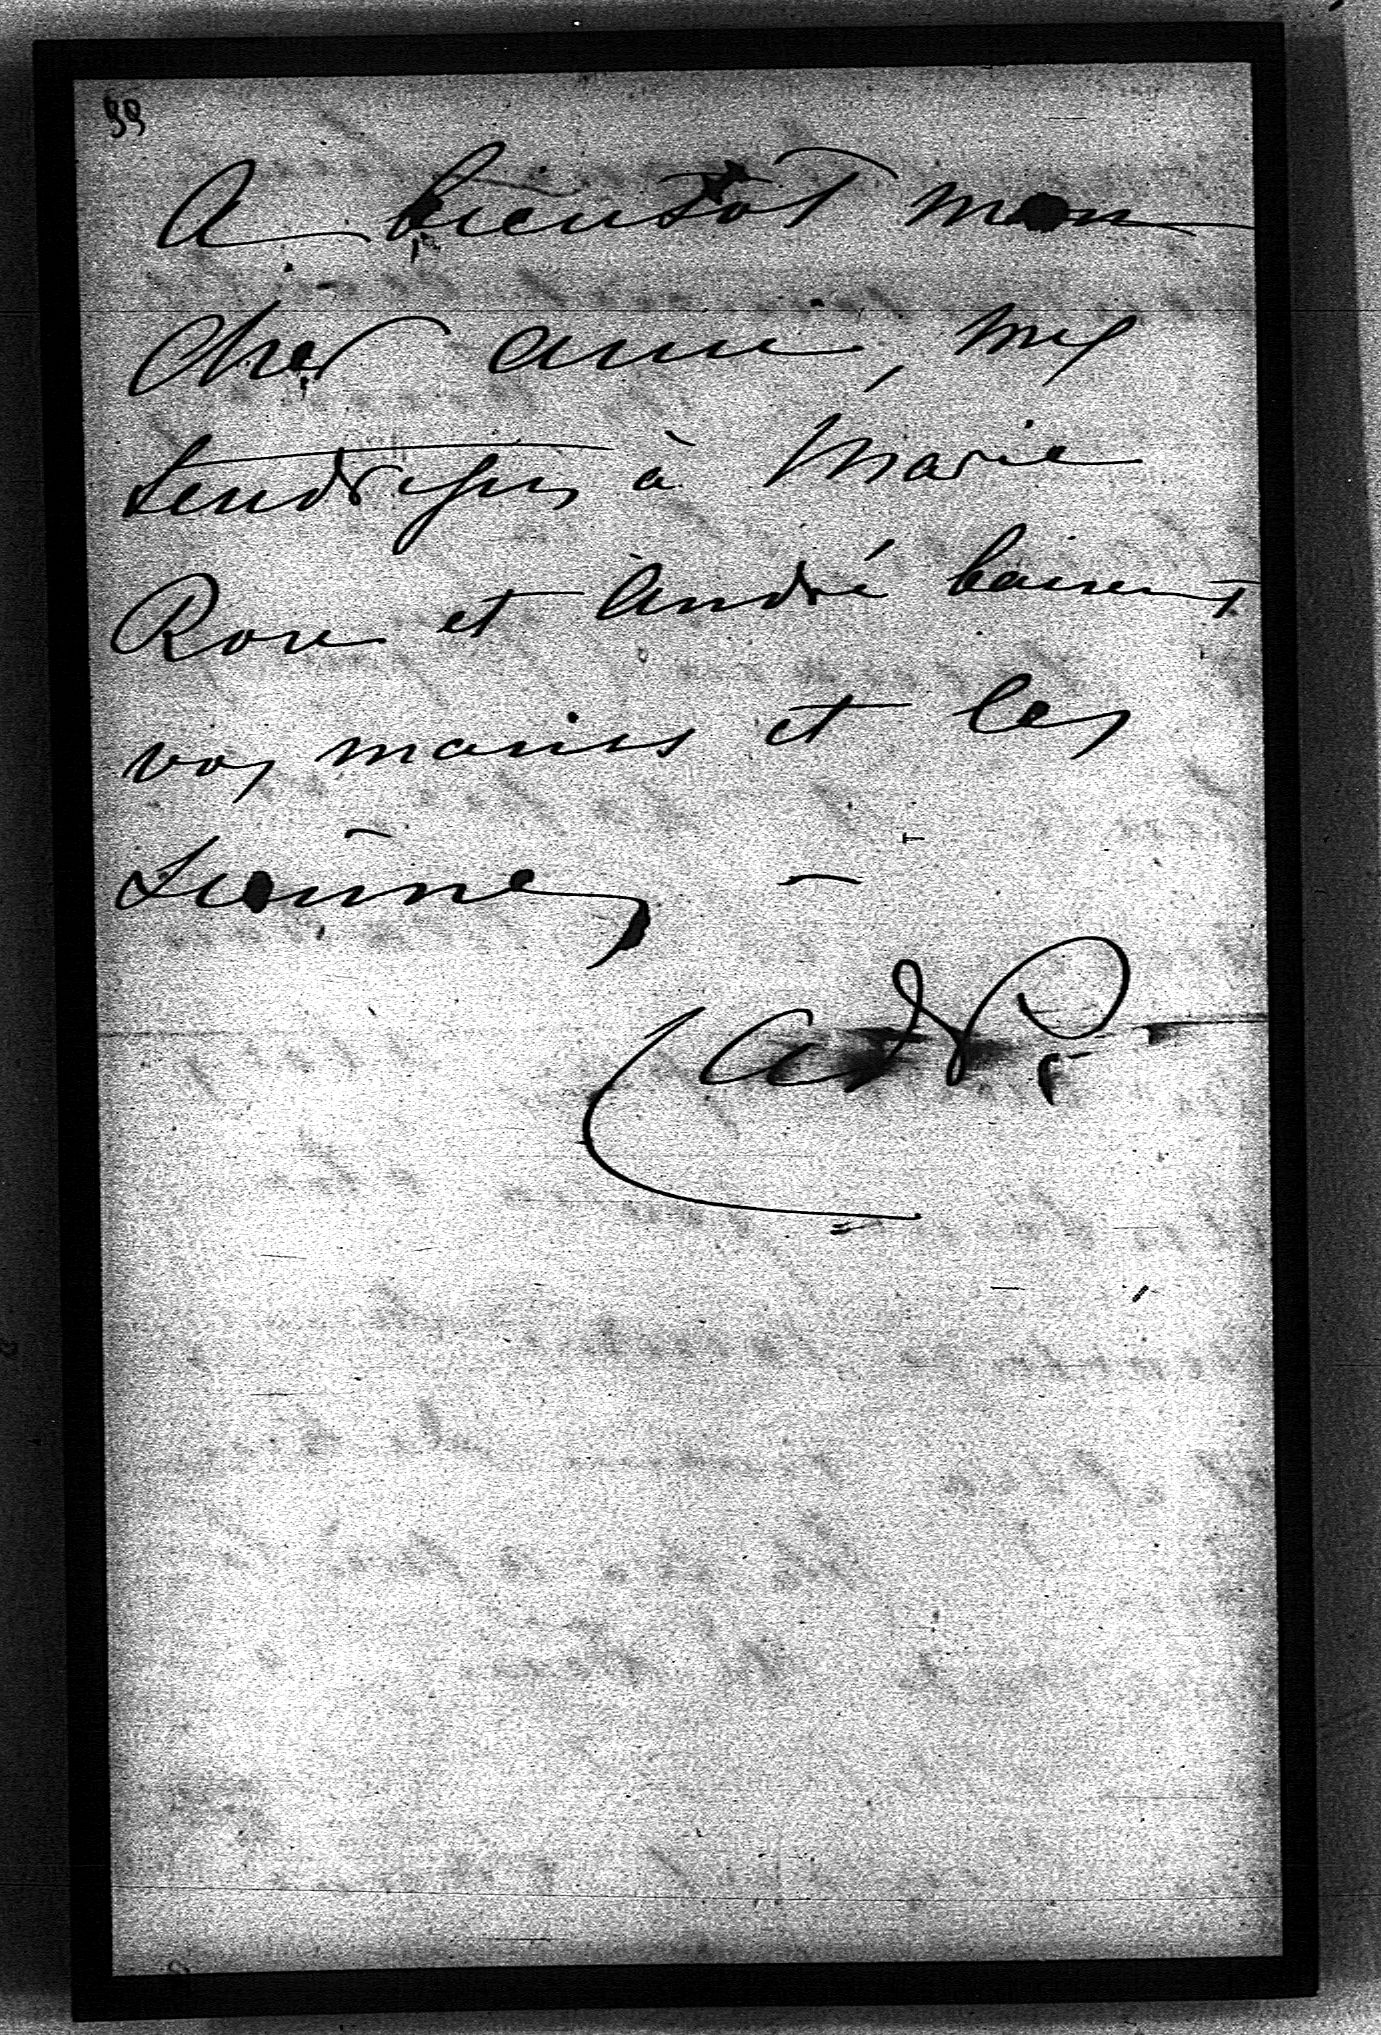 99
A bientôt mon
cher ami, mes
tendresses à Marie
Rose et André baisent
vos mains et les
siennes –
A de P.